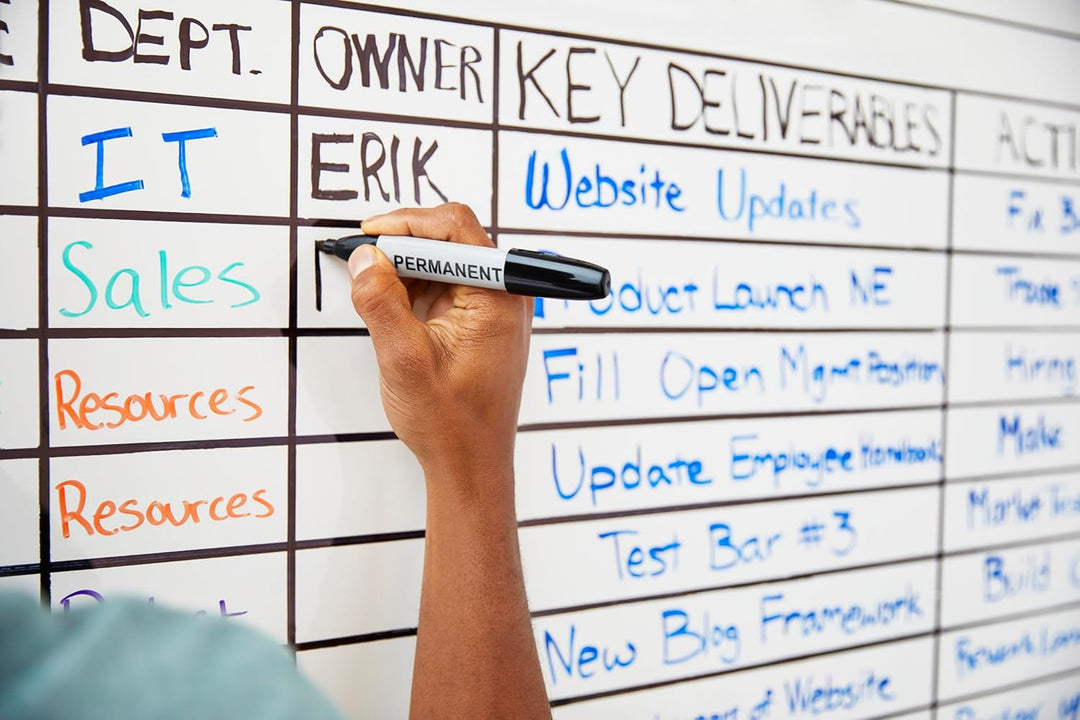 DEPT. OWNER KEY DELIVERABLES
IT ERIK Website Updates Fix
Sales Product Launch NE
PERMANENT
Resources Fill Open Mgmt Position Hiring
Resources Update Employee Handbook Make
Test Bar #3 Market
New Blog Framework Build
of Website